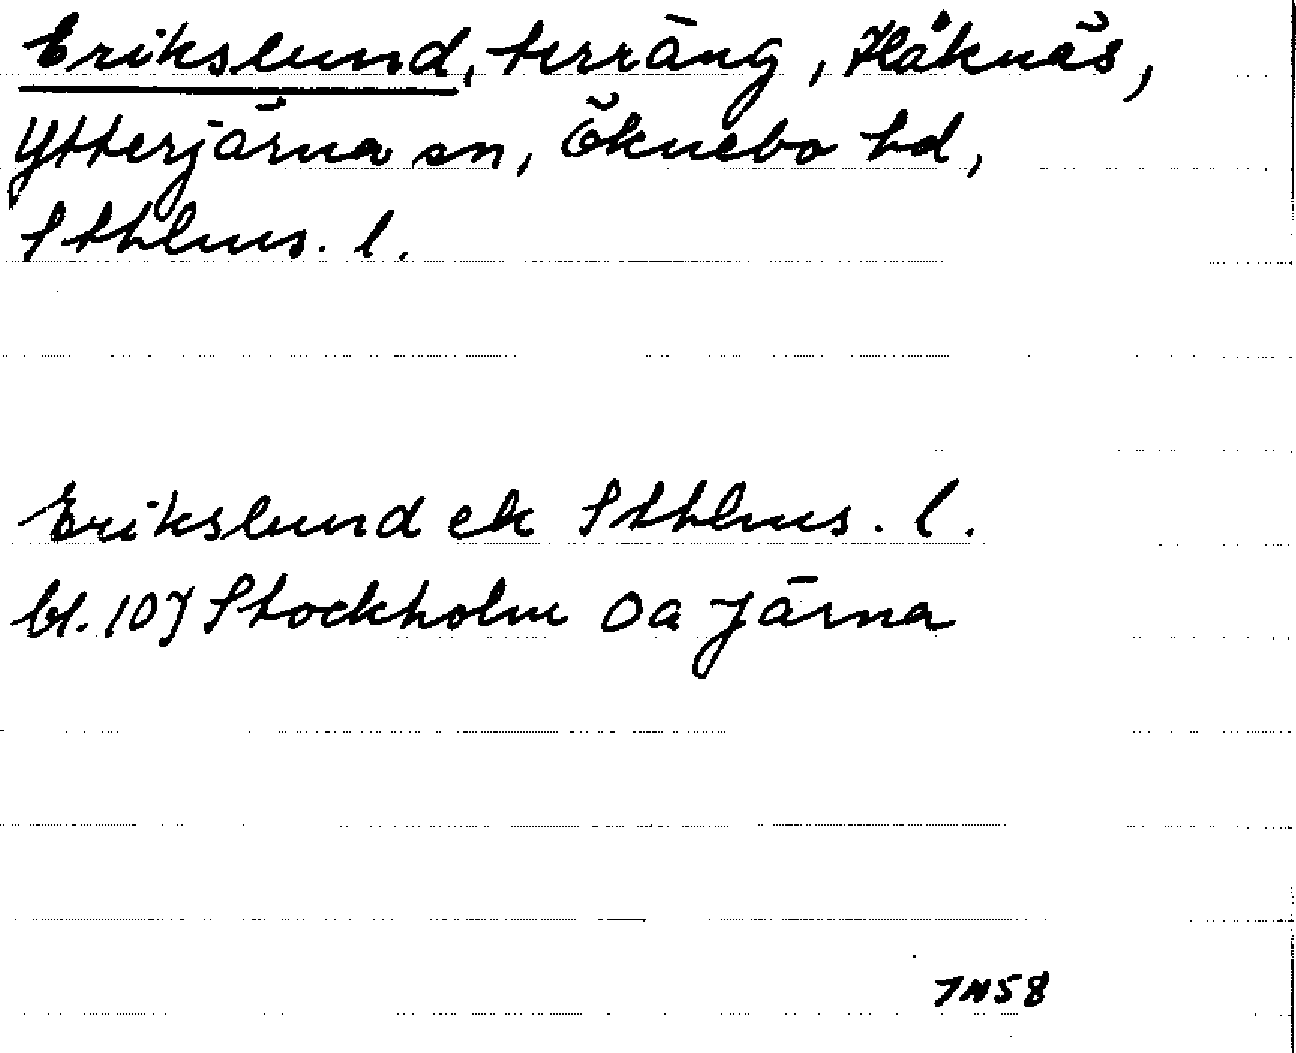 Erikslund, terräng, Håknäs,
Ytterjärna sn, Öknebo hd,
Sthlms. l.
Erikslund ek Sthlms. l.
bl. 107 Stockholm Oa Järna
7N58